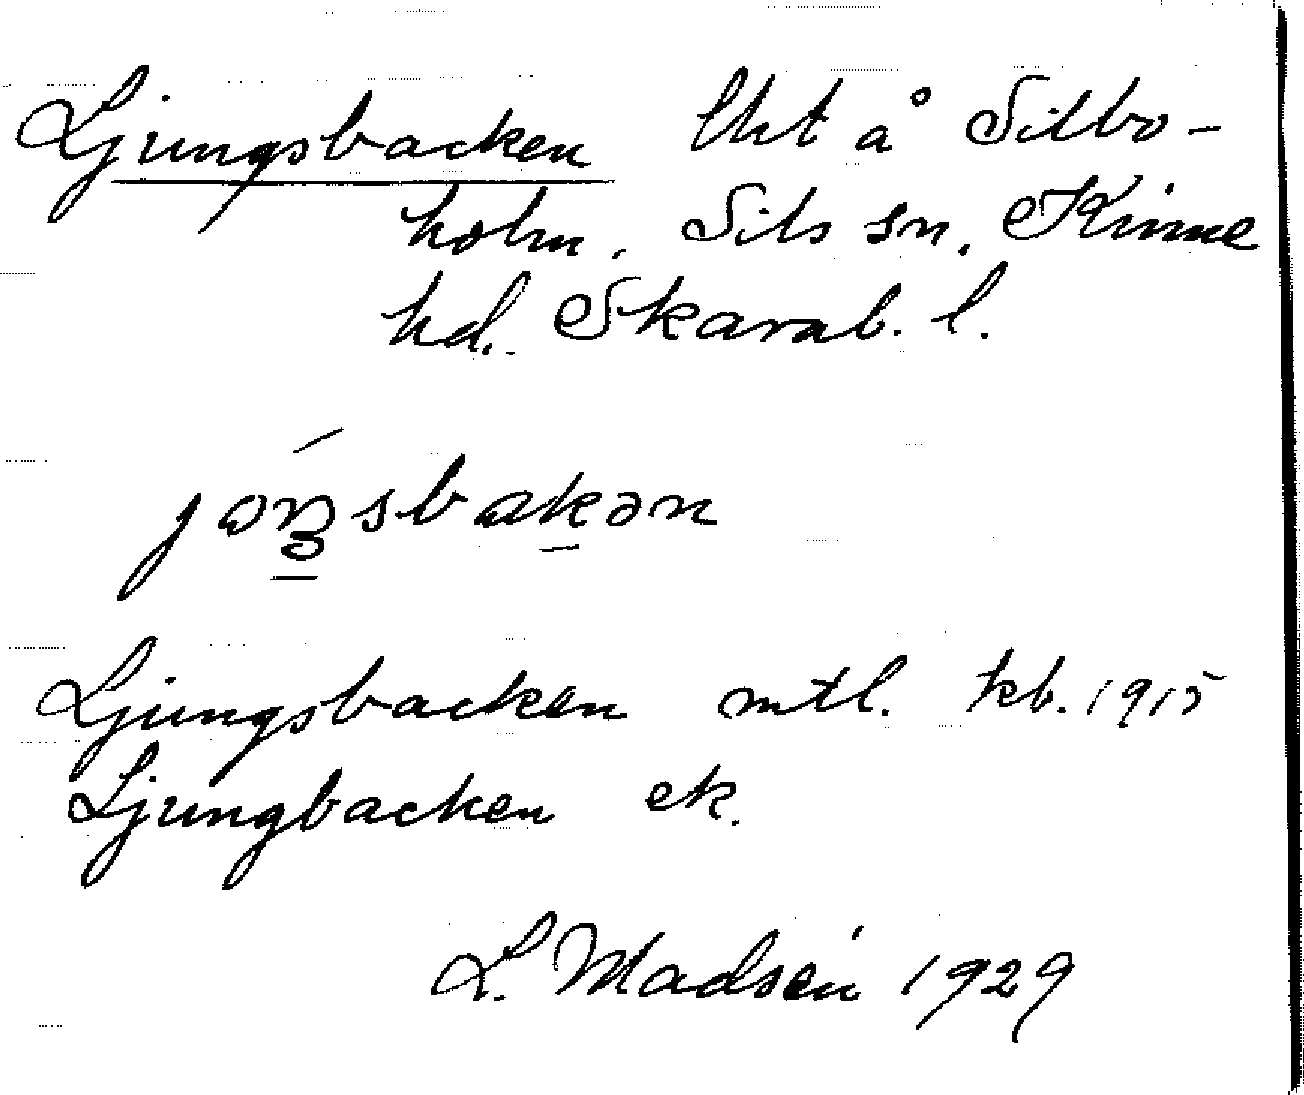 Ljungsbacken lht å Silbo-
holm, Sils sn, Kinne
hd. Skarab. l.
jɷŋsbakən
Ljungsbacken mtl. kb. 1915
Ljungbacken ek.
L. Madsén 1929